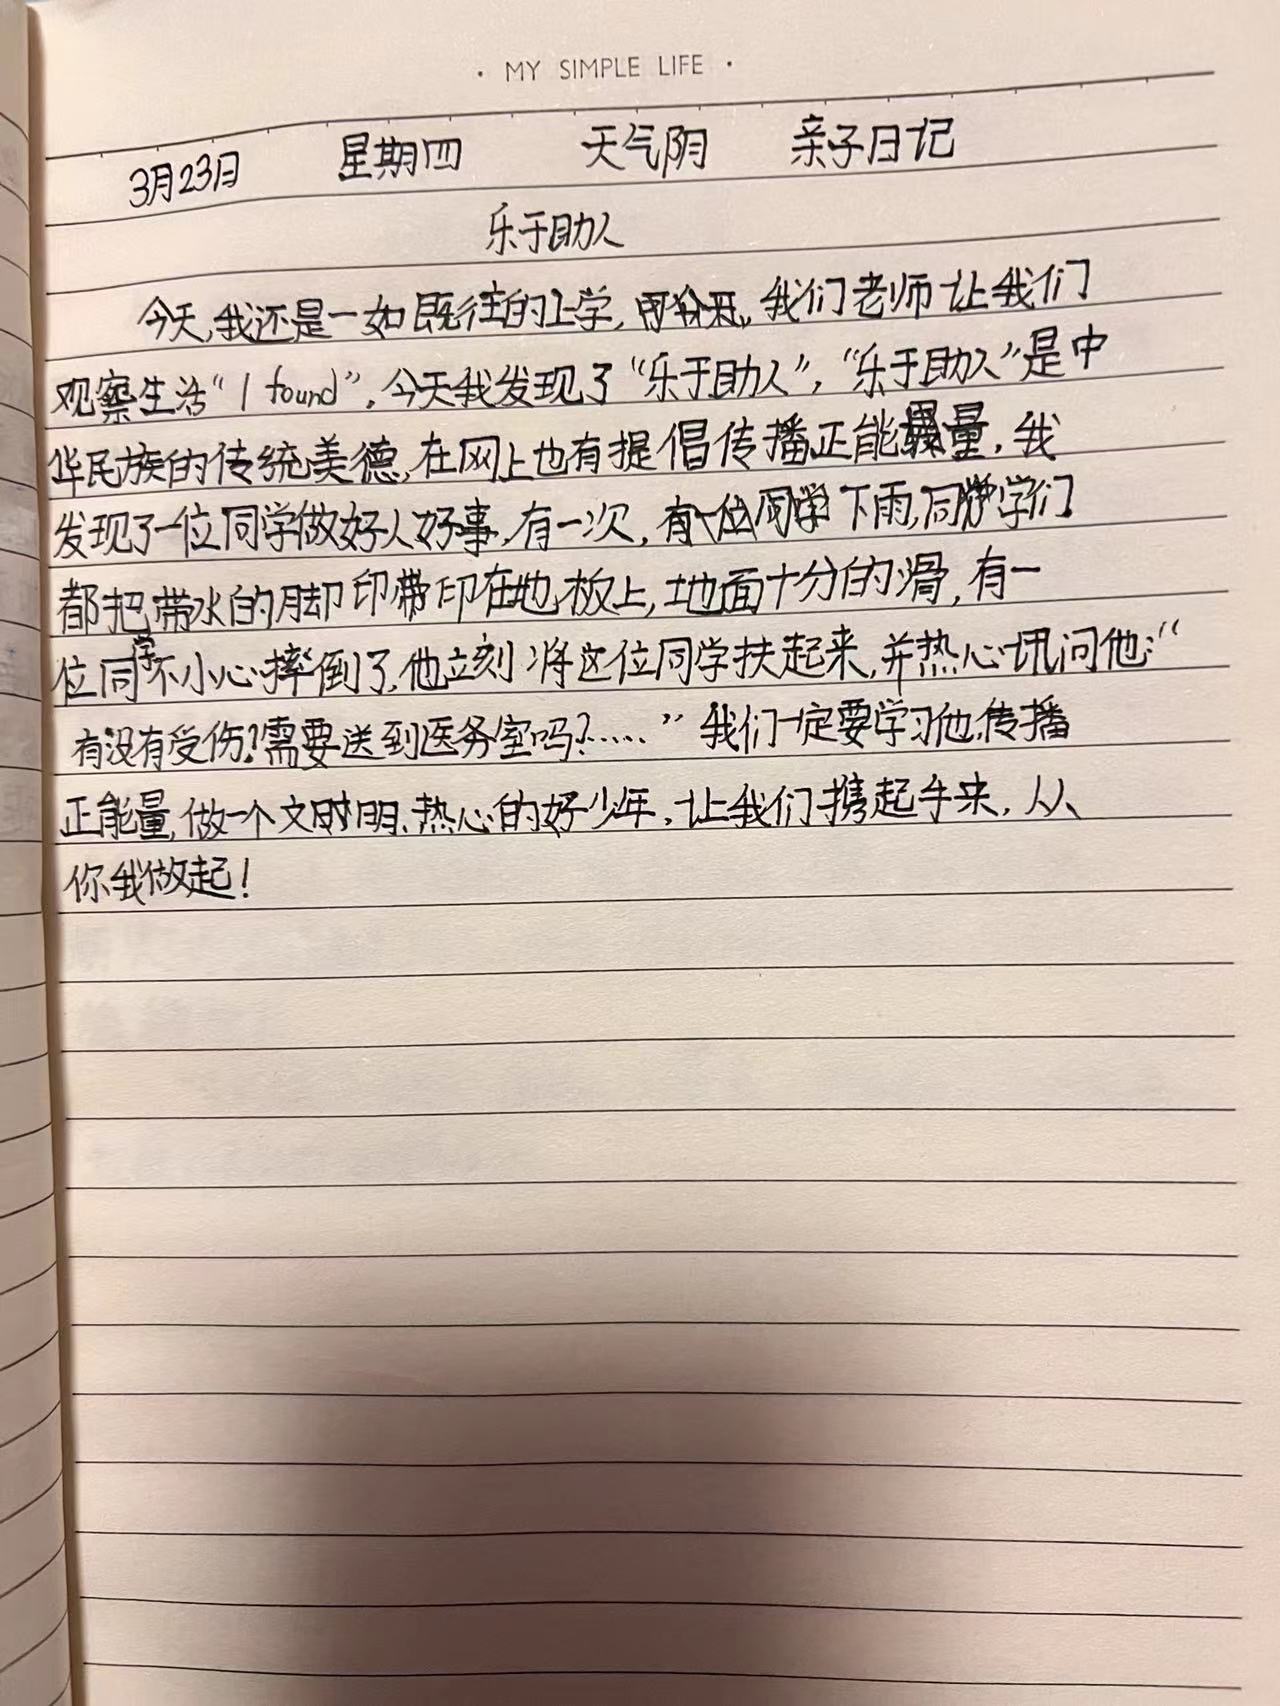 · MY SIMPLE LIFE ·
3月23日 星期四 天气阴 亲子日记
乐于助人
今天,我还是一如既往的上学, 我们老师让我们
观察生活“I found”,今天我发现了“乐于助人”,“乐于助人”是中
华民族的传统美德,在网上也有提倡传播正能量,我
发现了一位同学做好人好事,有一次,有一位同学下雨,同学们
都把带水的脚印带印在地板上,地面十分的滑,有一
位同学不小心摔倒了,他立刻将这位同学扶起来,并热心讯问他:“
有没有受伤?需要送到医务室吗?……”我们一定要学习他,传播
正能量,做一个文明、热心的好少年,让我们携起手来,从
你我做起!